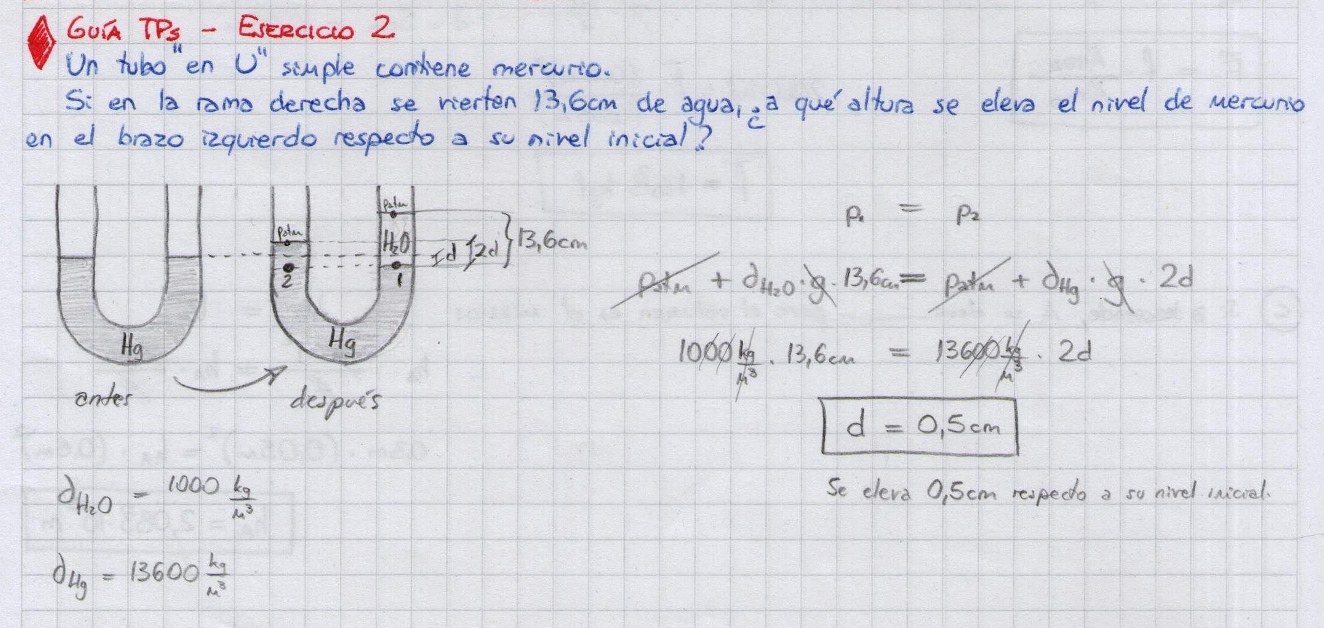 GUÍA TPs - EJERCICIO 2
Un tubo "en U" simple contiene mercurio.
Si en la rama derecha se vierten 13,6cm de agua, ¿a qué altura se eleva el nivel de mercurio
en el brazo izquierdo respecto a su nivel inicial?
Hg
antes
patm
patm
H₂O
2
1
d
2d
13,6cm
Hg
después
∂H₂O = 1000 kg/m³
∂Hg = 13600 kg/m³
p₁ = p₂
patm + ∂H₂O · g · 13,6cm = patm + ∂Hg · g · 2d
1000 kg/m³ · 13,6cm = 13600 kg/m³ · 2d
d = 0,5cm
Se eleva 0,5cm respecto a su nivel inicial.